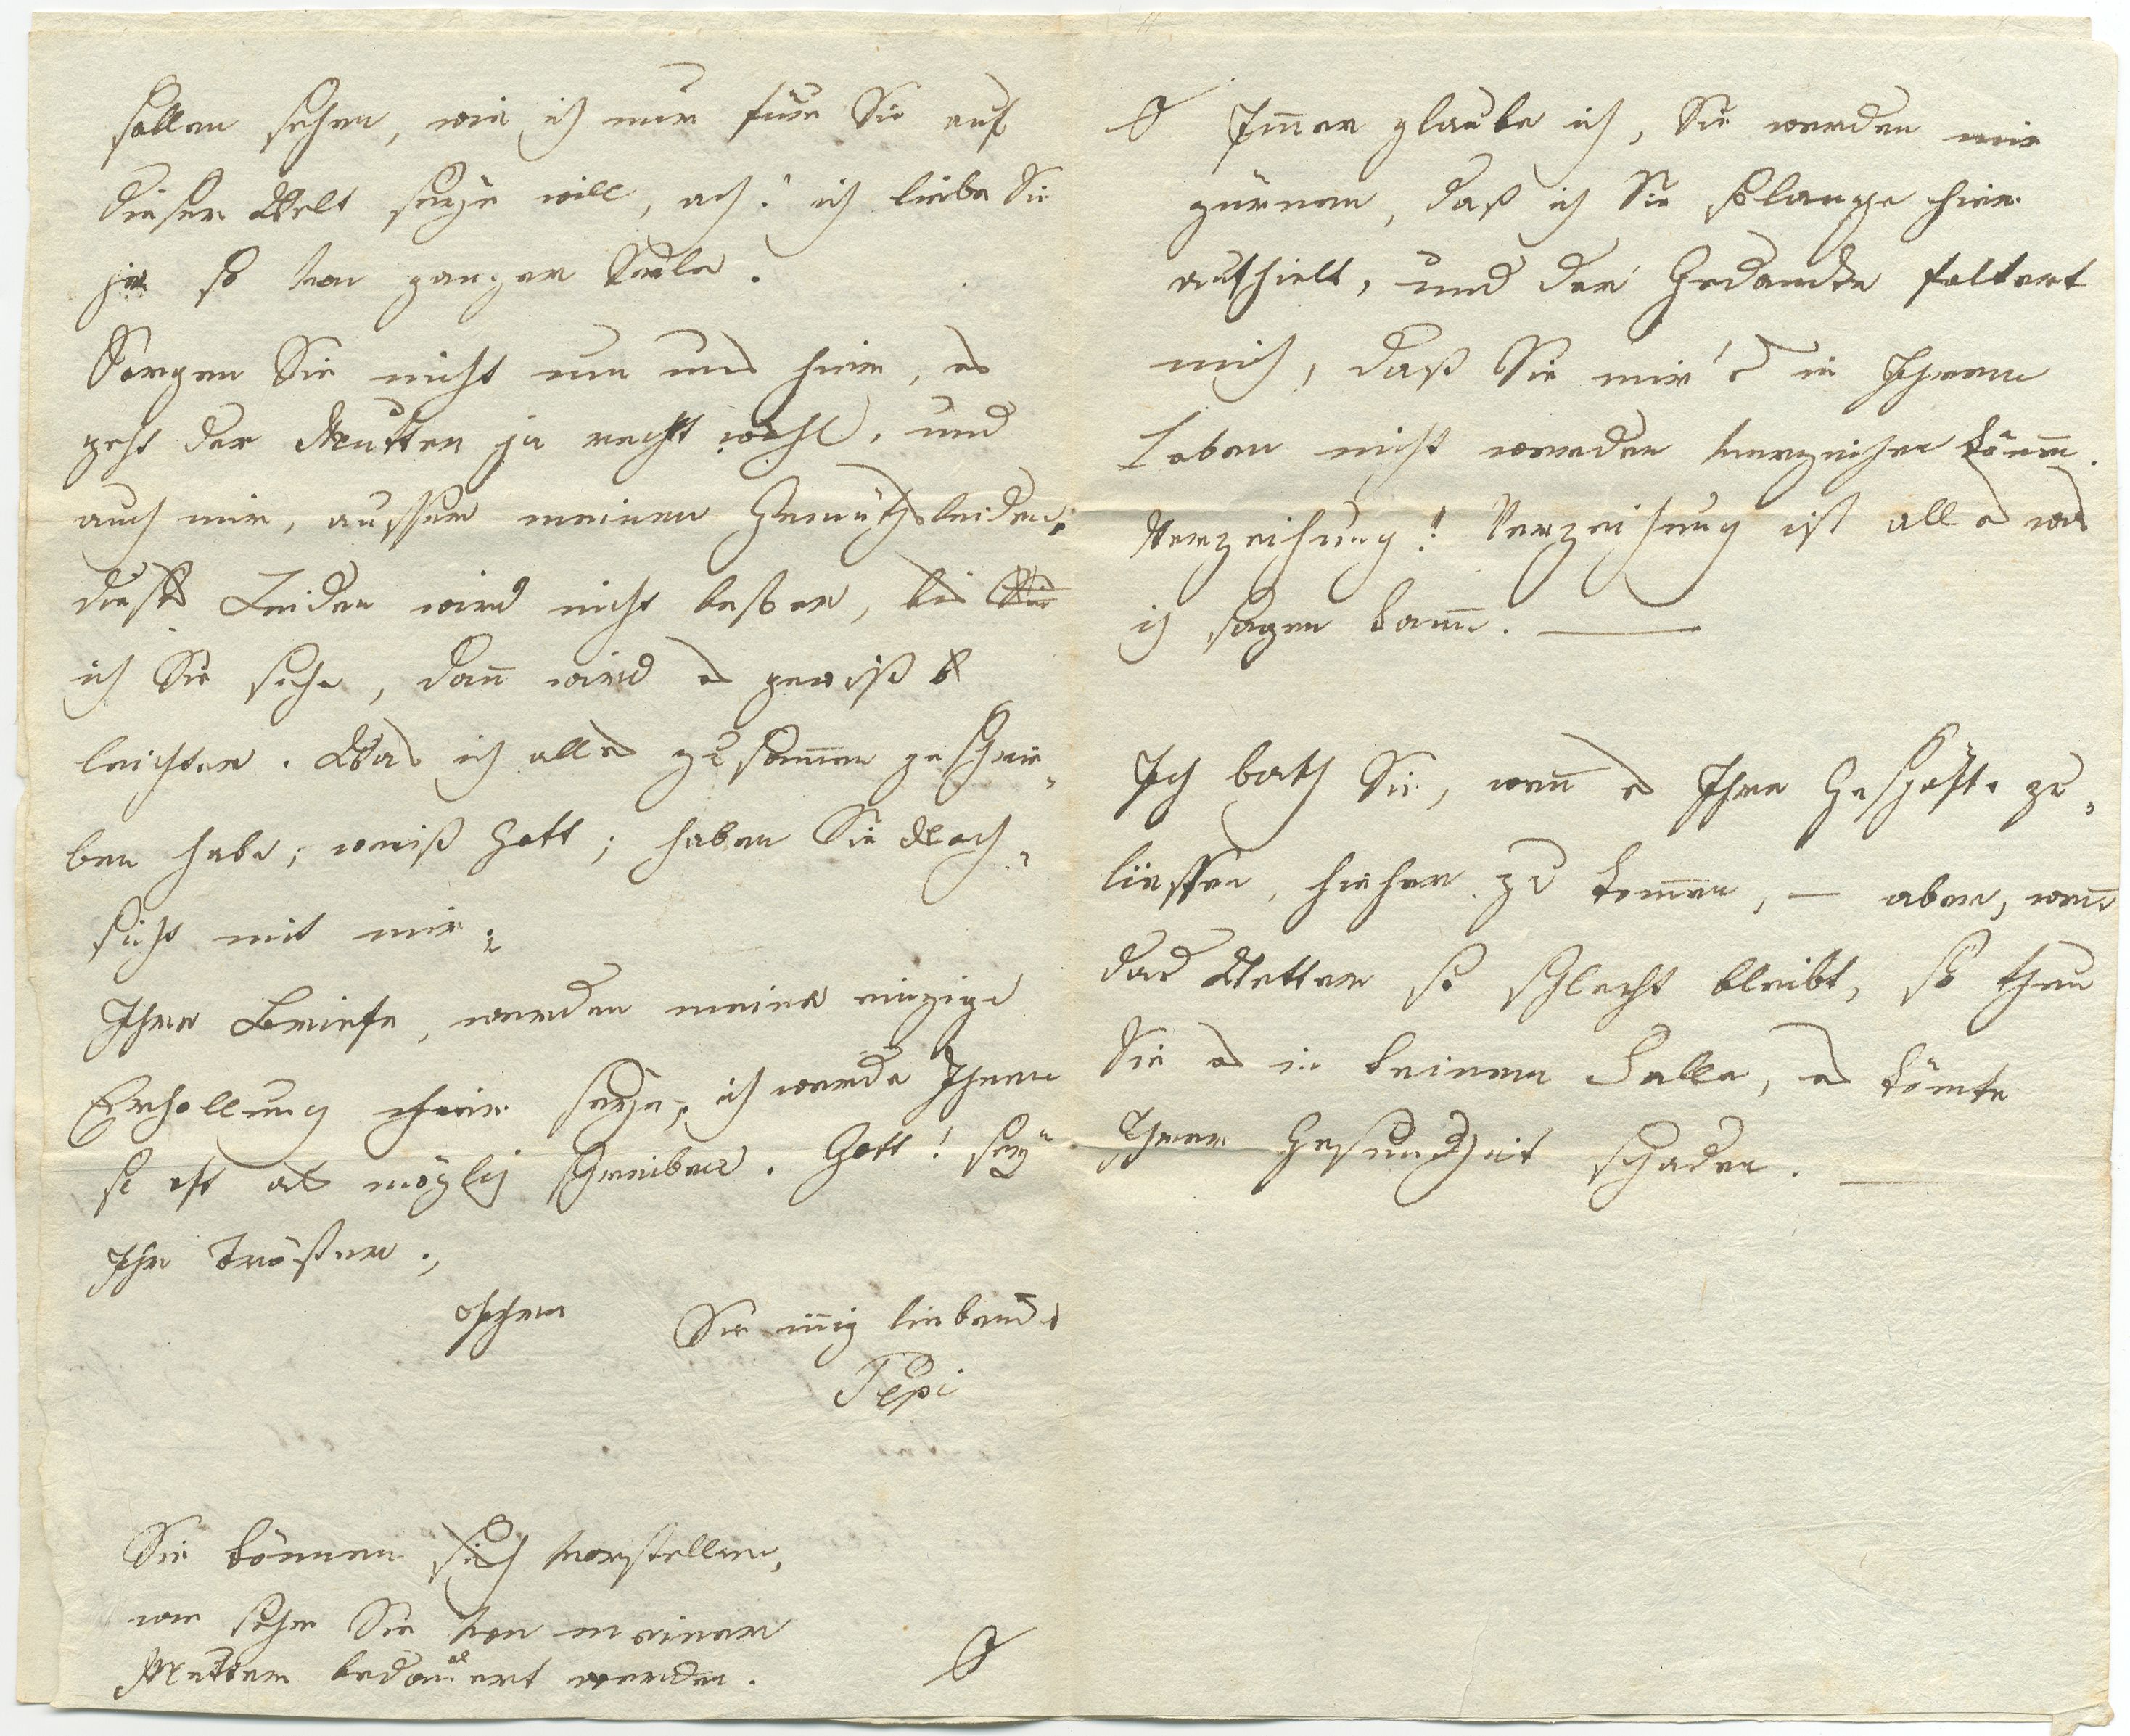 sollen sehen, wie ich nur für Sie auf
dieser Welt seÿn will, ach! ich liebe Sie
ja so von ganzer Seele.
Sorgen Sie nicht um uns hier, es
geht der Mutter ja recht wohl, und
auch mir, ausser meinen Gemüthsleiden;
dieses Leiden wird nicht besser, bis Sie
ich Sie sehe, dann wird es gewiß
leichter. Was ich alles zusam̅en geschrie-
ben habe, weiß Gott; haben Sie Nach-
sicht mit mir.
Ihre Briefe, werden meine einzige
Erhollung hier seÿn, ich werde Ihnen
so oft als möglich schreiben. Gott! seÿ
Ihr Tröster.
Sie in̅ig liebende
Pepi
Sie können sich vorstellen,
wie sehr Sie von meiner
Mutter bedauert werden.
Im̅er glaube ich, Sie werden mir
zürnen, daß ich Sie solange hier
aufhielt, und der Gedancke foltert
mich, daß Sie mir's in Ihrem
Leben nicht werden verzeihen kön̅en.
Verzeihung! Verzeihung ist alles was
ich sagen kann. —
Ich bath Sie, wen̅ es Ihre Geschäfte zu-
liessen, hieher zu kom̅en, — aber, wen̅
das Wetter so schlecht bleibt, so thun
Sie es in keinem Falle, es kön̅te
Ihrer Gesundheit schaden. —